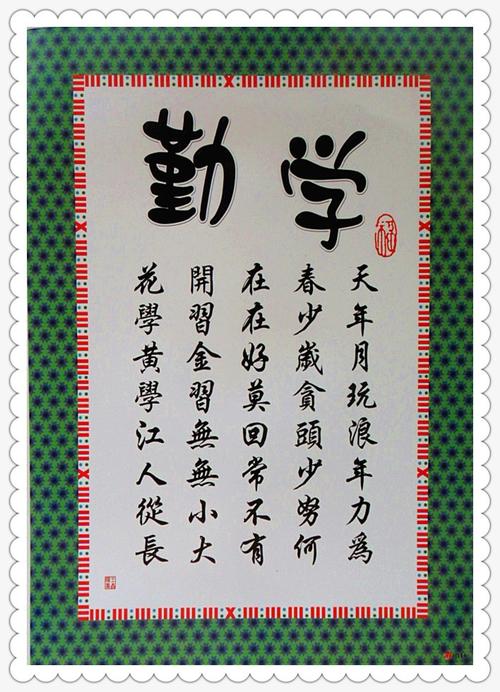 勤学
花開在春天
學習在少年
黃金好歲月
學習莫貪玩
江無回頭浪
人無常少年
從小不努力
長大有何為